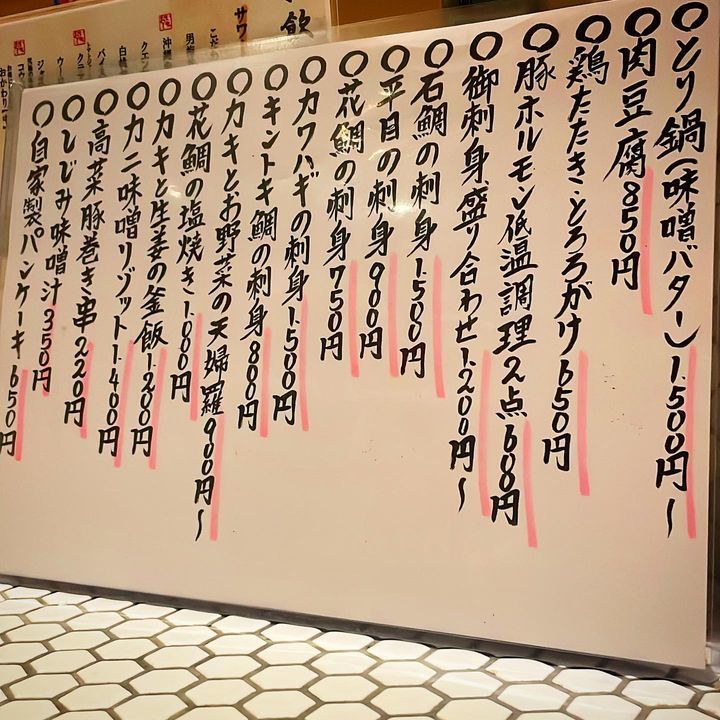 ○とり鍋(味噌バター)1.500円〜
○肉豆腐850円
○鶏たたき・とろろがけ650円
○豚ホルモン低温調理2点600円
○御刺身盛り合わせ1.200円〜
○石鯛の刺身1.500円
○平目の刺身900円
○花鯛の刺身750円
○カワハギの刺身1.500円
○キントキ鯛の刺身800円
○カキとお野菜の天婦羅900円〜
○花鯛の塩焼き1.000円
○カキと生姜の釜飯1.200円
○カニ味噌リゾット1.400円
○高菜豚巻き串220円
○しじみ味噌汁350円
○自家製パンケーキ650円
飲
サワ